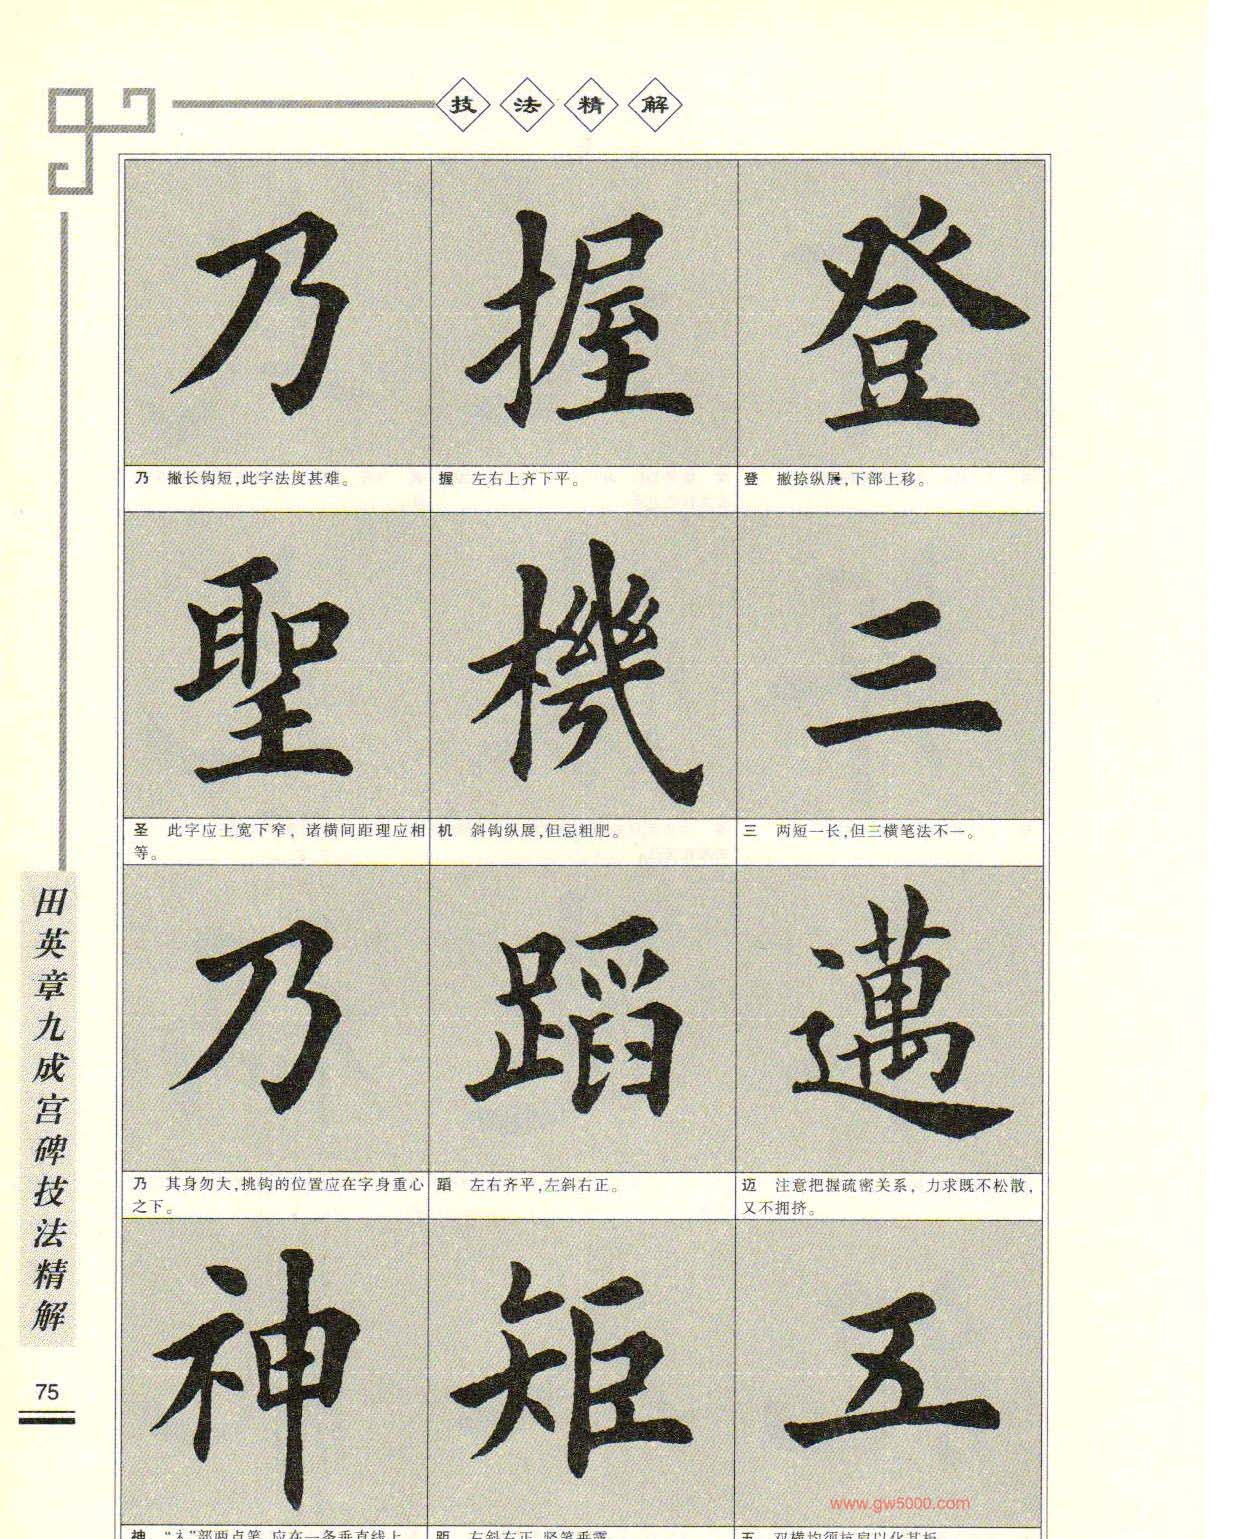 技法精解
乃 握 登
乃 撇长钩短,此字法度甚难。
握 左右上齐下平。
登 撇捺纵展,下部上移。
聖 機 三
圣 此字应上宽下窄，诸横间距理应相
等。
机 斜钩纵展,但忌粗肥。
三 两短一长,但三横笔法不一。
乃 蹈 邁
乃 其身勿大,挑钩的位置应在字身重心
之下。
蹈 左右齐平,左斜右正。
迈 注意把握疏密关系，力求既不松散，
又不拥挤。
神 矩 五
www.gw5000.com
神 “礻”部两点笔,应在一条垂直线上
左斜右正,竖笔垂露
五 双横均须
田英章九成宫碑技法精解
75